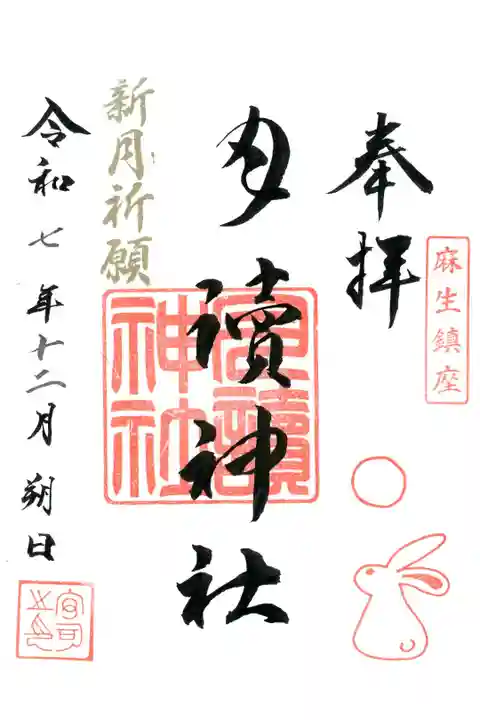 麻生鎮座
奉拝
月讀神社
月讀神社
新月祈願
令和七年十二月朔日